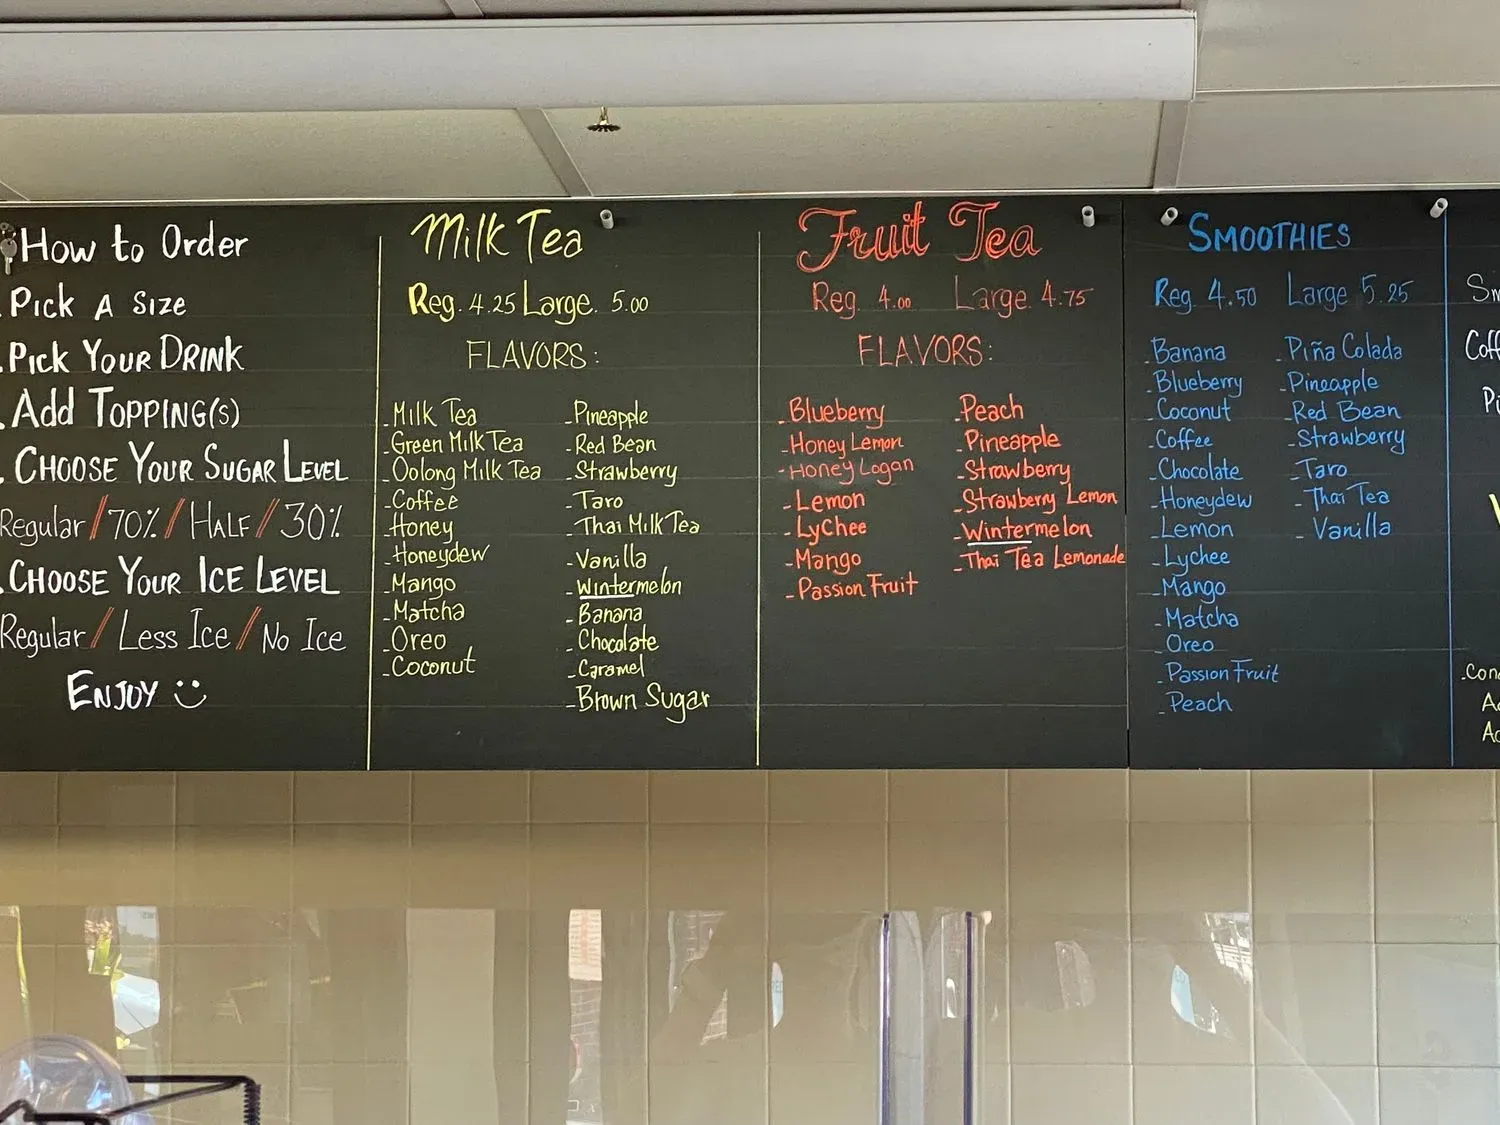 How to Order
.Pick A Size
.Pick Your Drink
.Add Topping(s)
.Choose Your Sugar Level
Regular / 70% / Half / 30%
.Choose Your Ice Level
Regular / Less Ice / No Ice
Enjoy
Milk Tea
Reg. 4.25 Large. 5.00
FLAVORS:
-Milk Tea
-Green Milk Tea
-Oolong Milk Tea
-Coffee
-Honey
-Honeydew
-Mango
-Matcha
-Oreo
-Coconut
-Pineapple
-Red Bean
-Strawberry
-Taro
-Thai Milk Tea
-Vanilla
-Wintermelon
-Banana
-Chocolate
-Caramel
-Brown Sugar
Fruit Tea
Reg. 4.00 Large 4.75
FLAVORS:
-Blueberry
-Honey Lemon
-Honey Logan
-Lemon
-LyChee
-Mango
-Passion Fruit
-Peach
-Pineapple
-Strawberry
-Strawberry Lemon
-Wintermelon
-Thai Tea Lemonade
SMOOTHIES
Reg. 4.50 Large 5.25
-Banana
-Blueberry
-Coconut
-Coffee
-Chocolate
-Honeydew
-Lemon
-Lychee
-Mango
-Matcha
-Oreo
-Passion Fruit
-Peach
-Piña Colada
-Pineapple
-Red Bean
-Strawberry
-Taro
-Thai Tea
-Vanilla